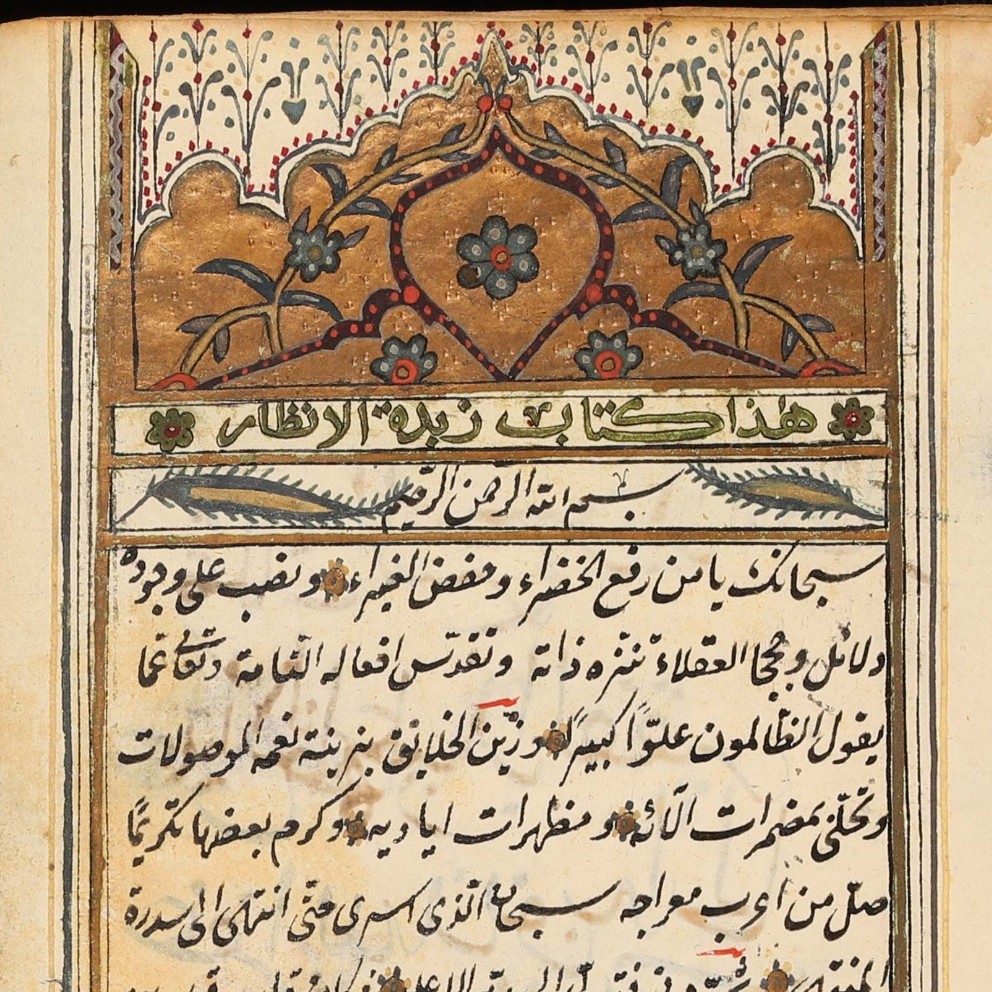 هذا كتاب زبدة الانظار
بسم الله الرحمن الرحيم
سبحانك يا من رفع الخضراء وخفض الغبراء ونصب على وجوده
دلائل وحججا العقلاء تنزه ذاته وتقدس افعاله التامة وتعالى عما
يقول الظالمون علوّا كبيرًا وزيّن الخلايق بزينة نعمه الموصولات
وتحلّى بمضمرات آلائه ومظهرات اياديه وكرم بعضها تكريمًا
صلّ من اعرب معراجه سبحان الّذى اسرى حتّى انتهى الى سدرة
المنتهى